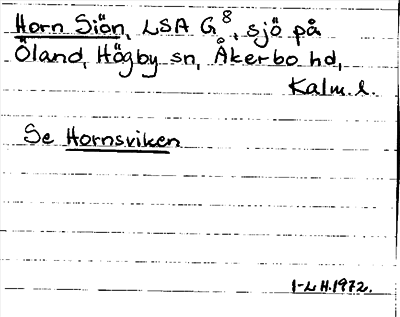 Horn Siön, LSA G8, sjö på
Öland, Högby sn, Åkerbo hd,
Kalm. l.
Se Hornsviken
1-LH.1972.